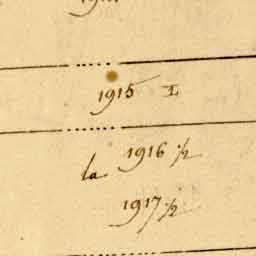 1915 I
la 1916 ½
1917 ½